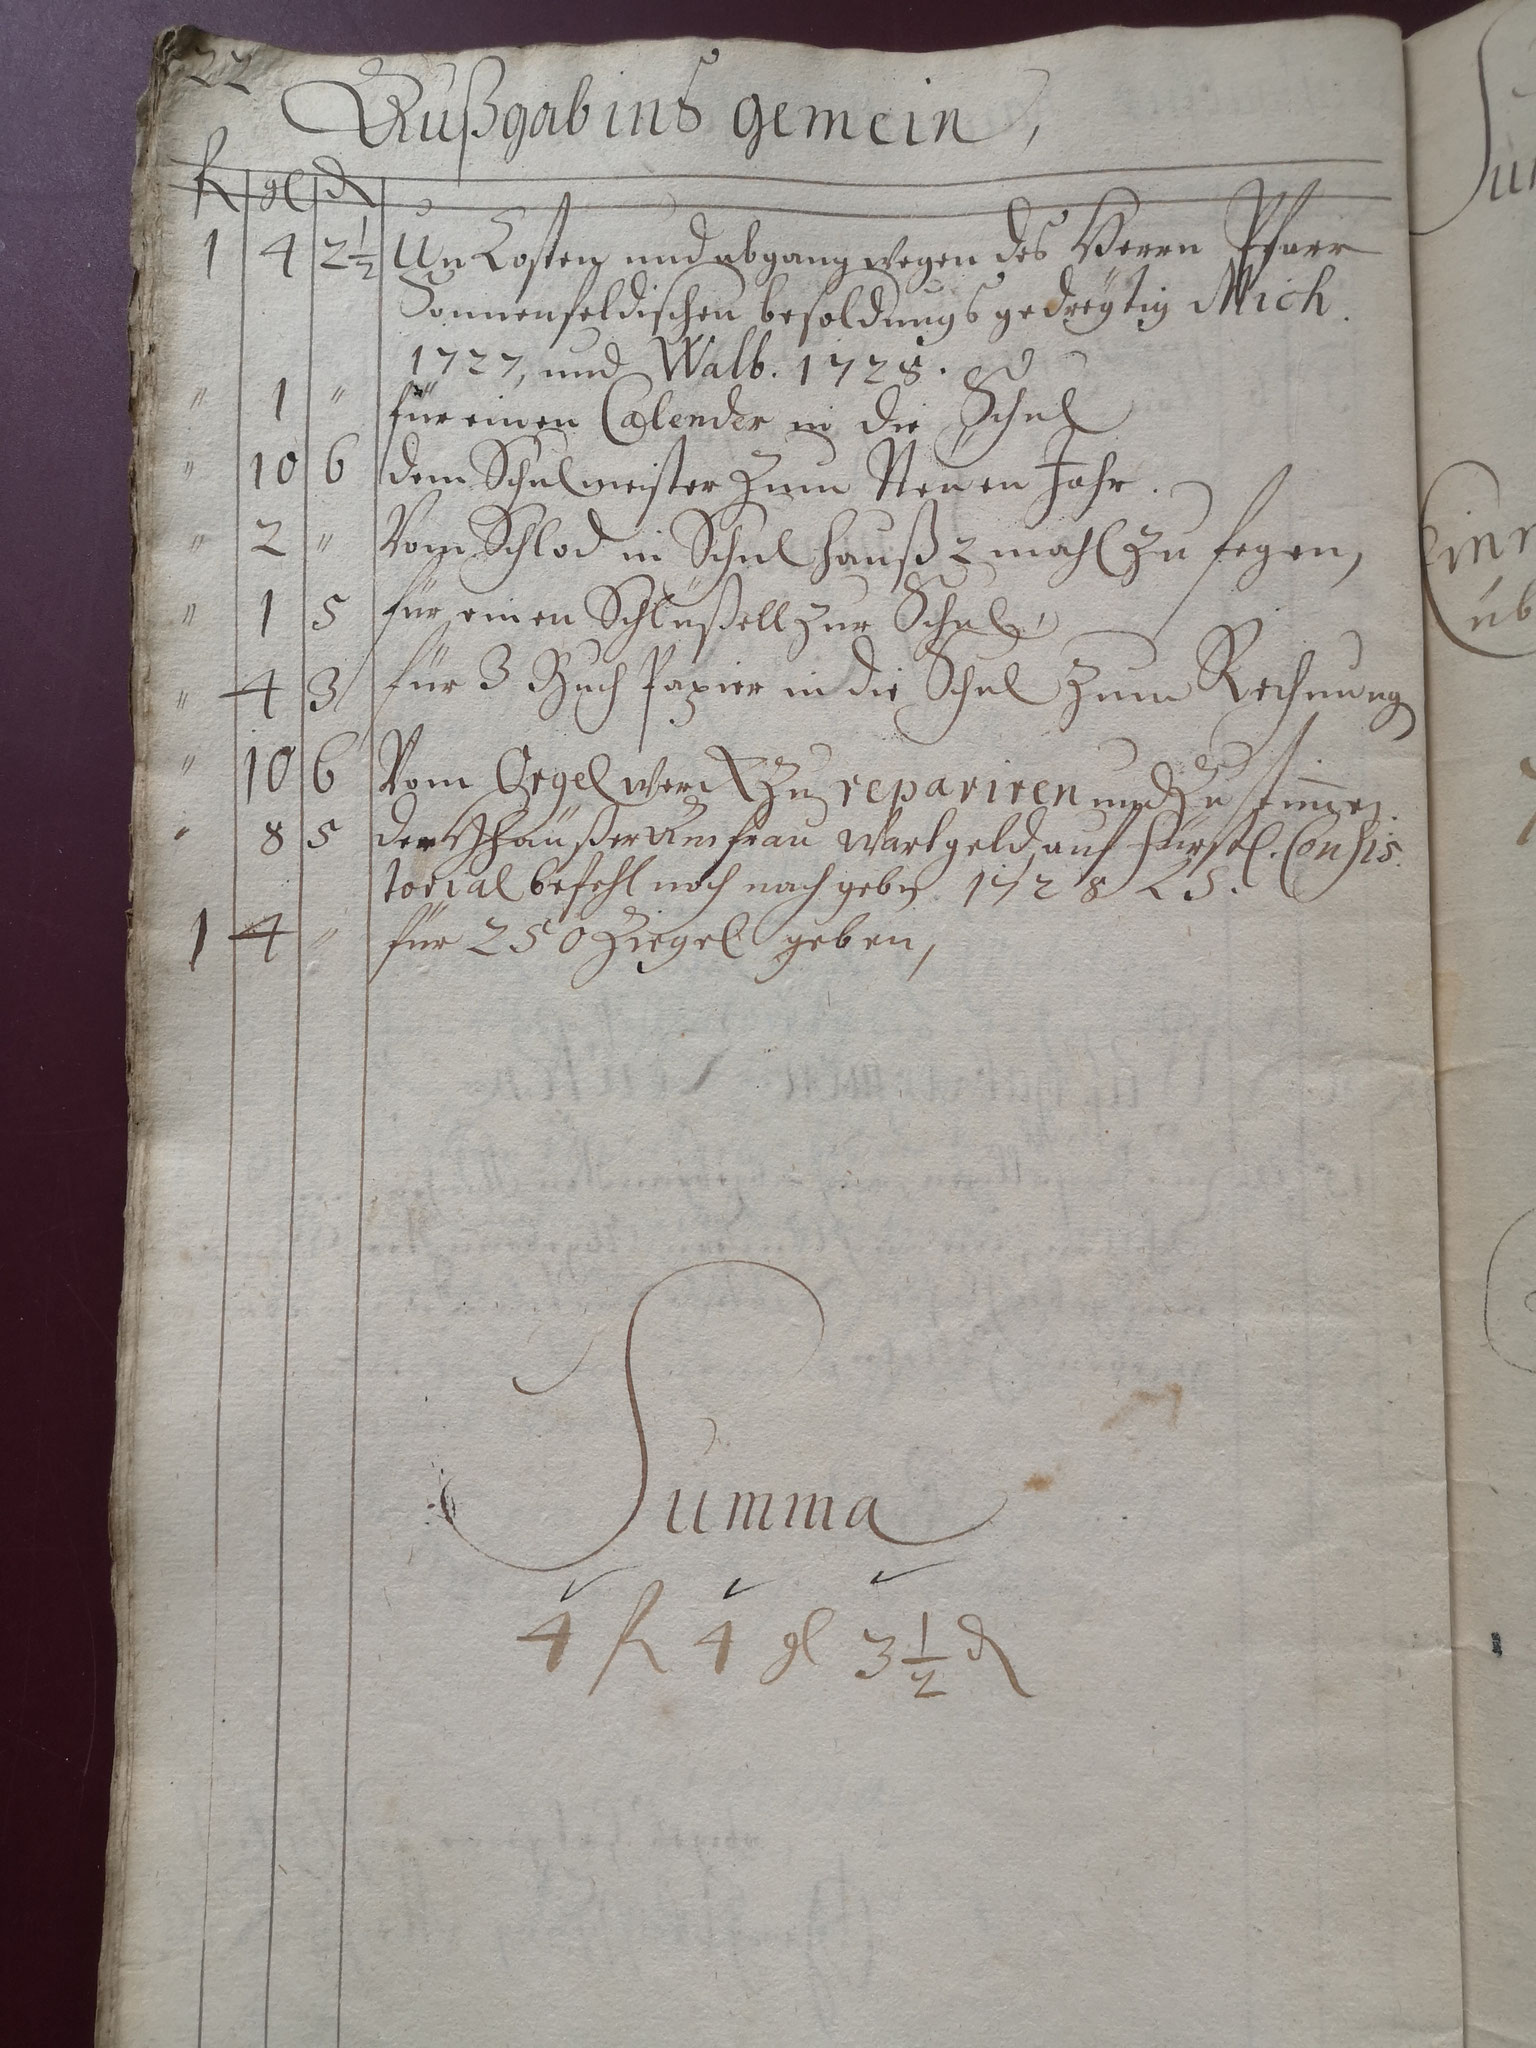 22
Außgab ins gemein,
fl gl d
1 4 2½ Un Costen und abgang wegen des Herrn Pfarr
Sonnenfeldischen besoldungs gedreytig Mich.
1727, und Walb. 1728.
" 1 " für einen Calender in die Schul
" 10 6 dem Schulmeister zum Neuen Jahr.
" 2 " Vom Schlod in Schulhauß 2 mahl zu fegen,
" 1 5 für einen Schlüßell zur Schul,
" 4 3 für 3 Buch Papier in die Schul zum Rechnung
" 10 6 Vom Orgelwerck zu repariren und zu stimmen.
" 8 5 der Amfrau Wartgeld, auf Fürstl. Consis
torial befehl noch nach geben 1728
1 4 " für 250 Ziegel geben,
Summa
4 fl 4 gl 3½ d